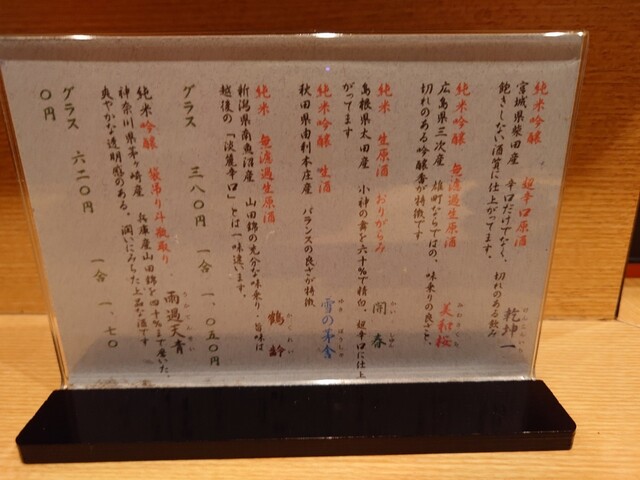 純米吟醸 超辛口原酒
宮城県柴田産 辛口だけでなく、切れのある飲み
飽きしない酒質に仕上がってます。 乾坤一
純米吟醸 無濾過生原酒
広島県三次産 雄町ならではの、味乗りの良さと、
切れのある吟醸香が特徴です 美和桜
純米 生原酒 おりがらみ
島根県太田産 小神の舞を六十%で精白、超辛口に仕上
がってます 開春
純米吟醸 生酒
秋田県由利本庄産 バランスの良さが特徴
雪の茅舎
純米 無濾過生原酒
新潟県南魚沼産 山田錦の充分な味乗り・旨味は
越後の「淡麗辛口」とは一味違います。 鶴齢
グラス 三八〇円 一合 一、〇五〇円
純米吟醸 袋吊り斗瓶取り
神奈川県茅ヶ崎産 兵庫産山田錦を四十%まで磨いた、
爽やかな透明感のある、潤いにみちた上品な酒です
雨過天青
グラス 六二〇円 一合 一、七〇
〇円